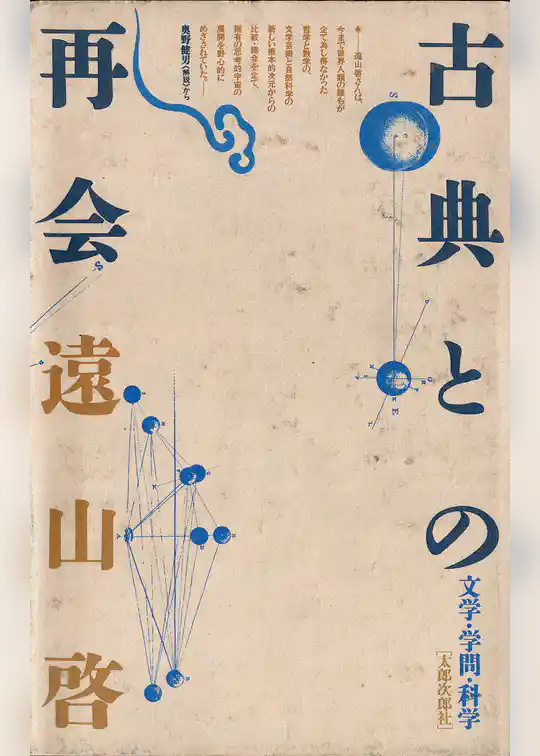 古典との
再会
文学・学問・科学
[太郎次郎社]
遠山啓
●——遠山啓さんは、
今まで世界人類の誰もが
企て為し得なかった
哲学と数学の、
文学芸術と自然科学の
新しい根本的次元からの
比較・綜合を企て、
独有の思考的宇宙の
展開を野心的に
めざされていた。……
奥野健男〈解説〉から